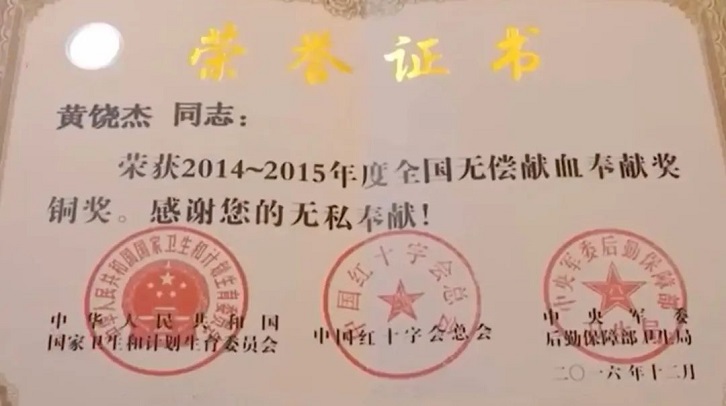 荣誉证书
黄饶杰 同志：
荣获2014~2015年度全国无偿献血奉献奖
铜奖。感谢您的无私奉献！
中华人民共和国
国家卫生和计划生育委员会
中国红十字会总会
中央军委
后勤保障部卫生局
二〇一六年十二月
中华人民共和国国家卫生和计划生育委员会
中国红十字会总会
中央军委后勤保障部